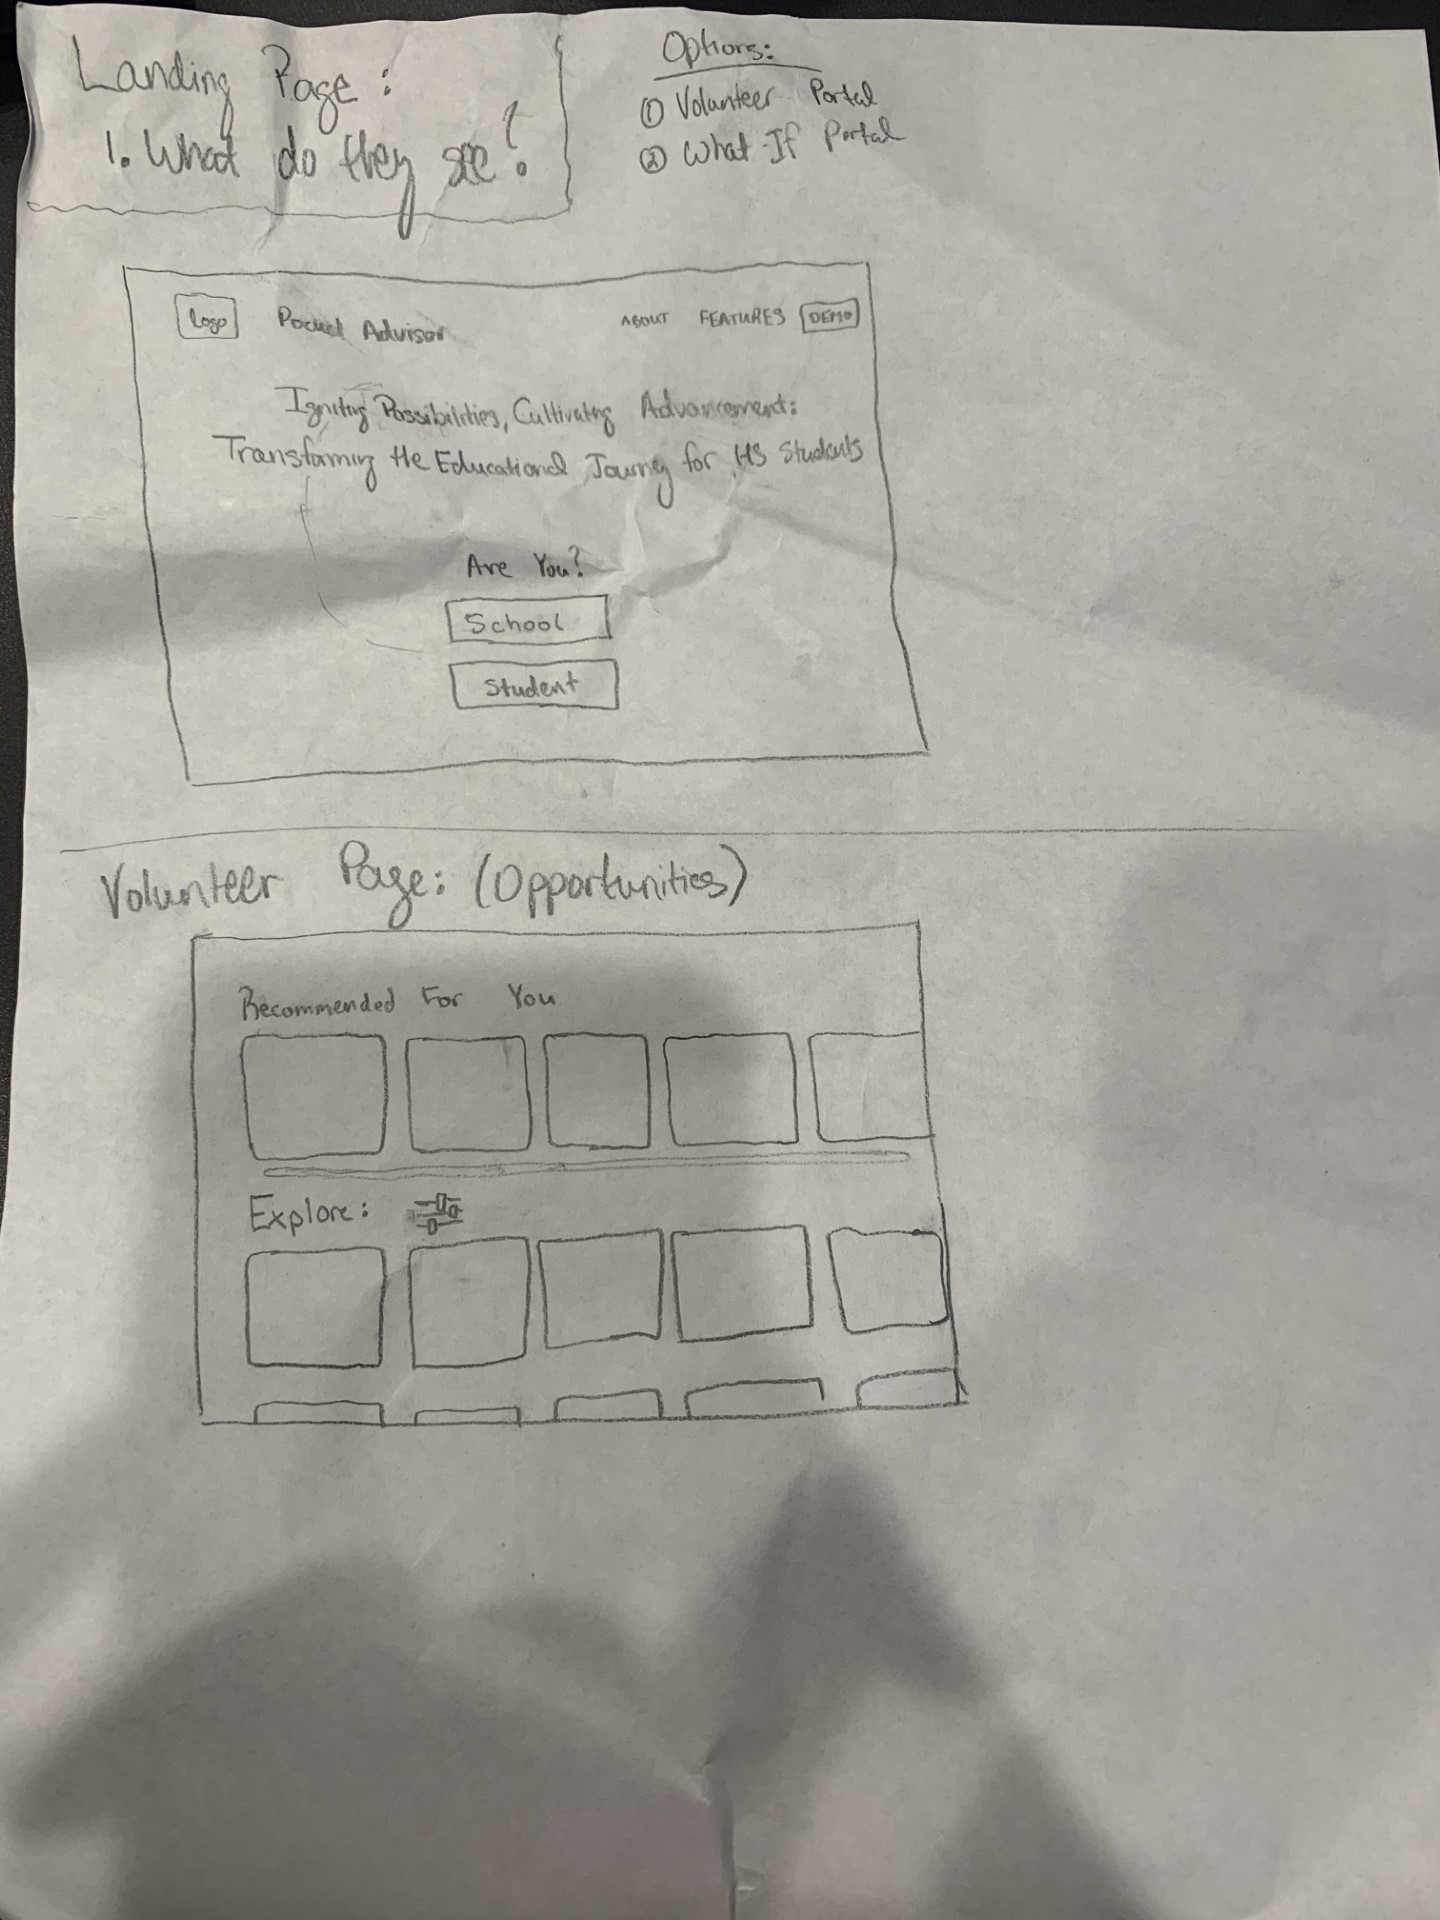 Landing Page:
1. What do they see?
Options:
① Volunteer Portal
② What-If Portal
Logo
Pocket Advisor
ABOUT FEATURES DEMO
Igniting Possibilities, Cultivating Advancement:
Transforming the Educational Journey for HS Students
Are You?
School
Student
Volunteer Page: (Opportunities)
Recommended For You
Explore: